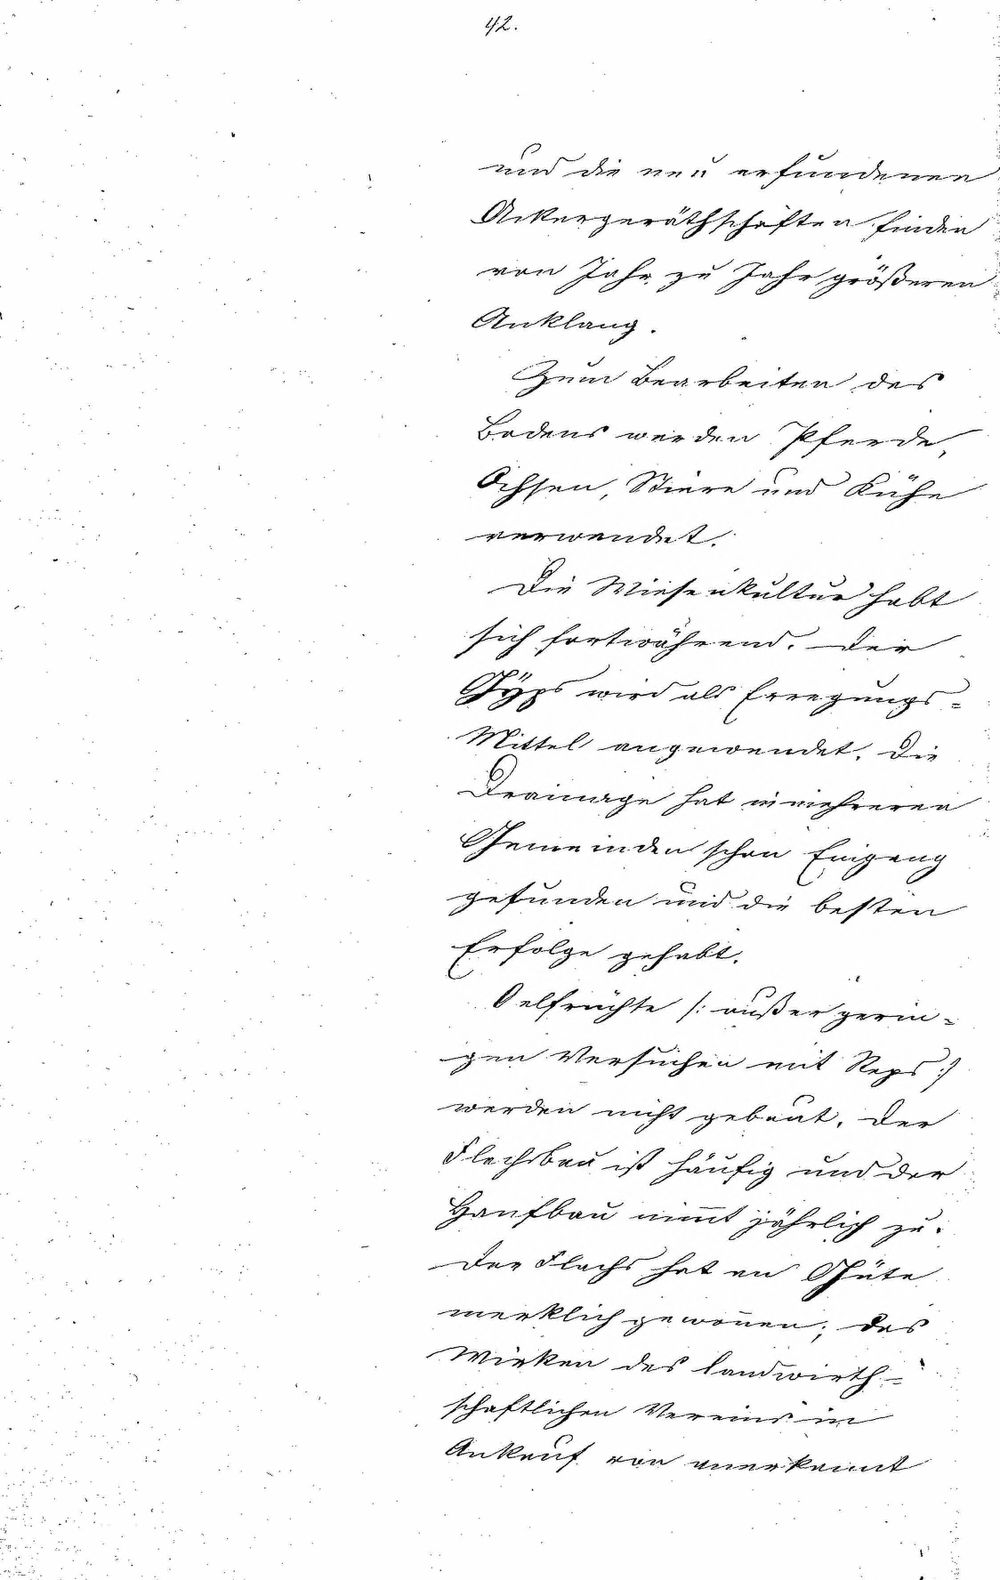 42.
und die neu erfundenen
Ackergeräthschaften finden
von Jahr zu Jahr größeren
Anklang.
Zum Bearbeiten des
Bodens werden Pferde,
Ochsen, Stiere und Kühe
verwendet.
Die Wiesenkultur hebt
sich fortwährend. Der
Gÿps wird als Erregungs-
Mittel angewendet. Die
Drainage hat in mehreren
Gemeinden schon Eingang
gefunden und die besten
Erfolge gehabt.
Oelfrüchte /: außer gerin-
gen Versuchen mit Reps :/
werden nicht gebaut. Der
Flachsbau ist häufig und der
Hanfbau nim̅t jährlich zu.
Der Flachs hat an Güte
merklich gewon̅en; das
Wirken des landwirth-
schaftlichen Vereins in
Ankauf von anerkannt